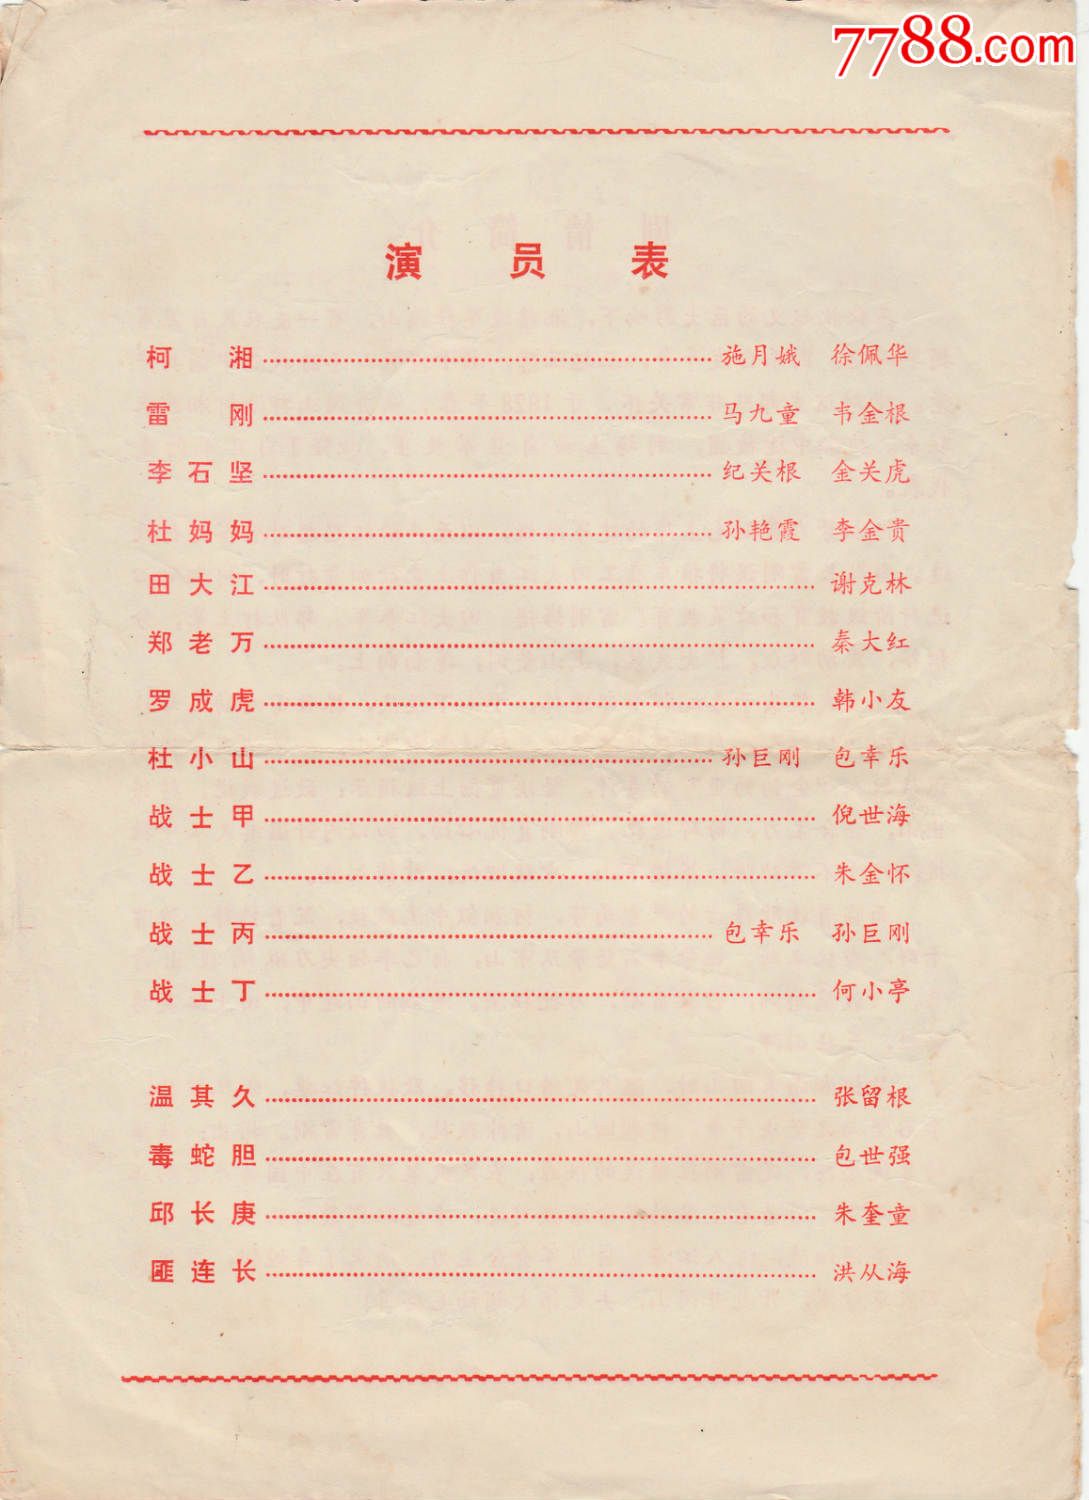 7788.com
演员表
柯湘 施月娥 徐佩华
雷刚 马九童 韦金根
李石坚 纪关根 金关虎
杜妈妈 孙艳霞 李金贵
田大江 谢克林
郑老万 秦大红
罗成虎 韩小友
杜小山 孙巨刚 包幸乐
战士甲 倪世海
战士乙 朱金怀
战士丙 包幸乐 孙巨刚
战士丁 何小亭
温其久 张留根
毒蛇胆 包世强
邱长庚 朱奎童
匪连长 洪从海